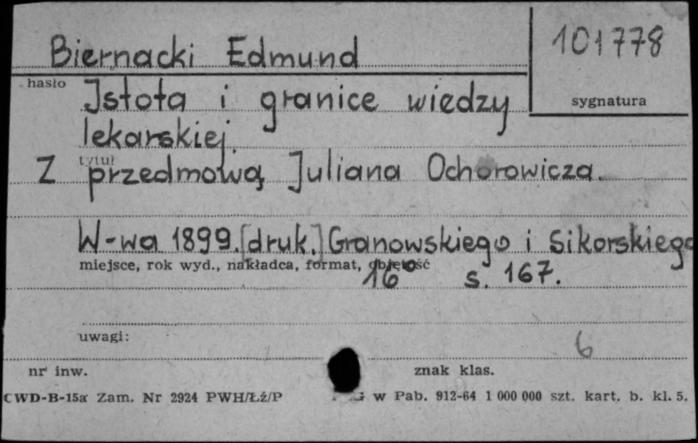 Biernacki Edmund
101778
hasło
sygnatura
Istota i granice wiedzy
lekarskiej.
tytuł
Z przedmową Juliana Ochorowicza.
W-wa 1899. [druk.] Granowskiego i Sikorskiego
miejsce, rok wyd., nakładca, format, objętość
16° s. 167.
uwagi:
6
nr inw.
znak klas.
CWD-B-15a Zam. Nr 2924 PWH/Łź/P
w Pab. 912-64 1 000 000 szt. kart. b. kl. 5.